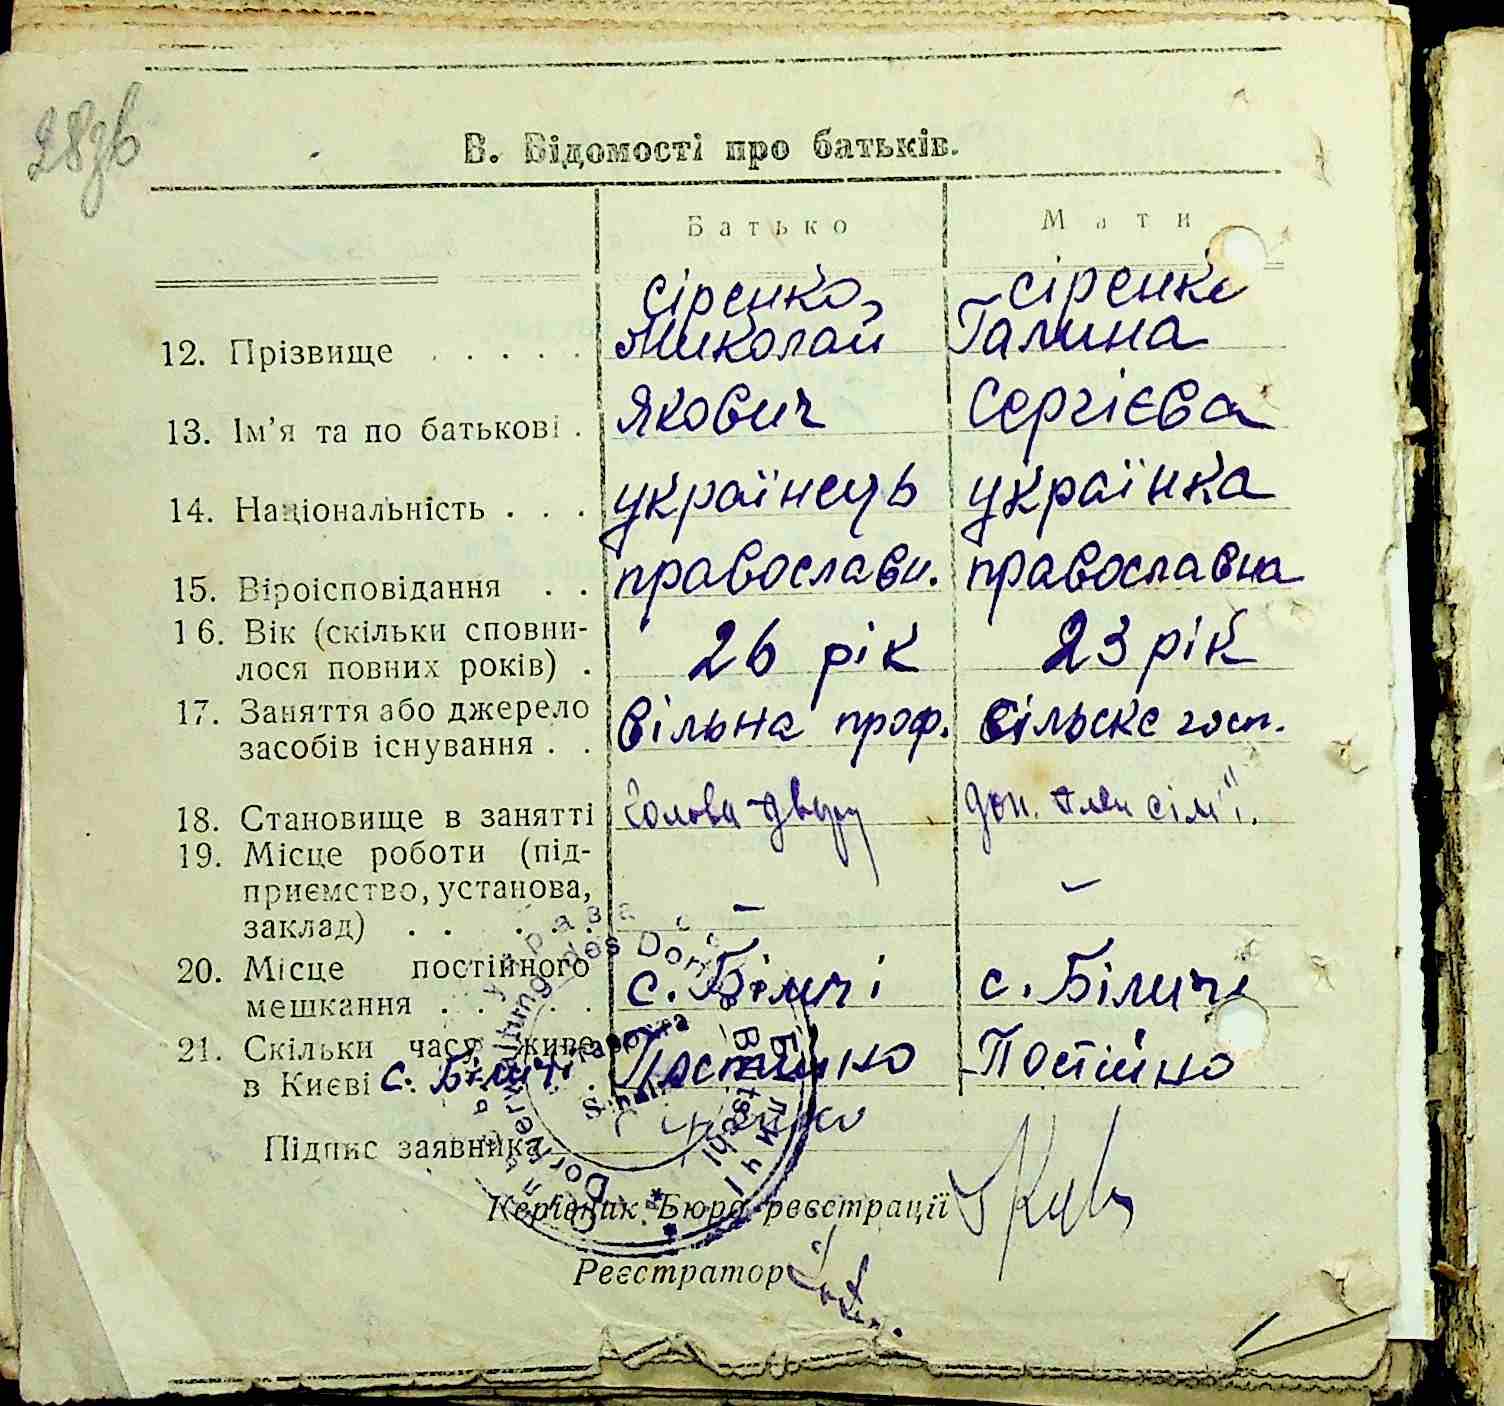 28зв
В. Відомості про батьків.
Батько Мати
Сіренко Сіренко
12. Прізвище . . . . . Миколай Галина
13. Ім'я та по батькові . Якович Сергієва
14. Національність . . . українець українка
15. Віроісповідання . . православн. православна
16. Вік (скільки сповни-
лося повних років) . 26 рік 23 рік
17. Заняття або джерело
засобів існування . . Вільна проф. Сільске госп.
18. Становище в занятті Голова двору доп. член сім'ї.
19. Місце роботи (під-
приємство, установа,
заклад) . . . . . – –
20. Місце постійного
мешкання . . . . . с. Біличі с. Біличі
21. Скільки часу живе
в Києві с. Біличі . Постійно Постійно
Підпис заявника
Керівник Бюра реєстрації
Реєстратор